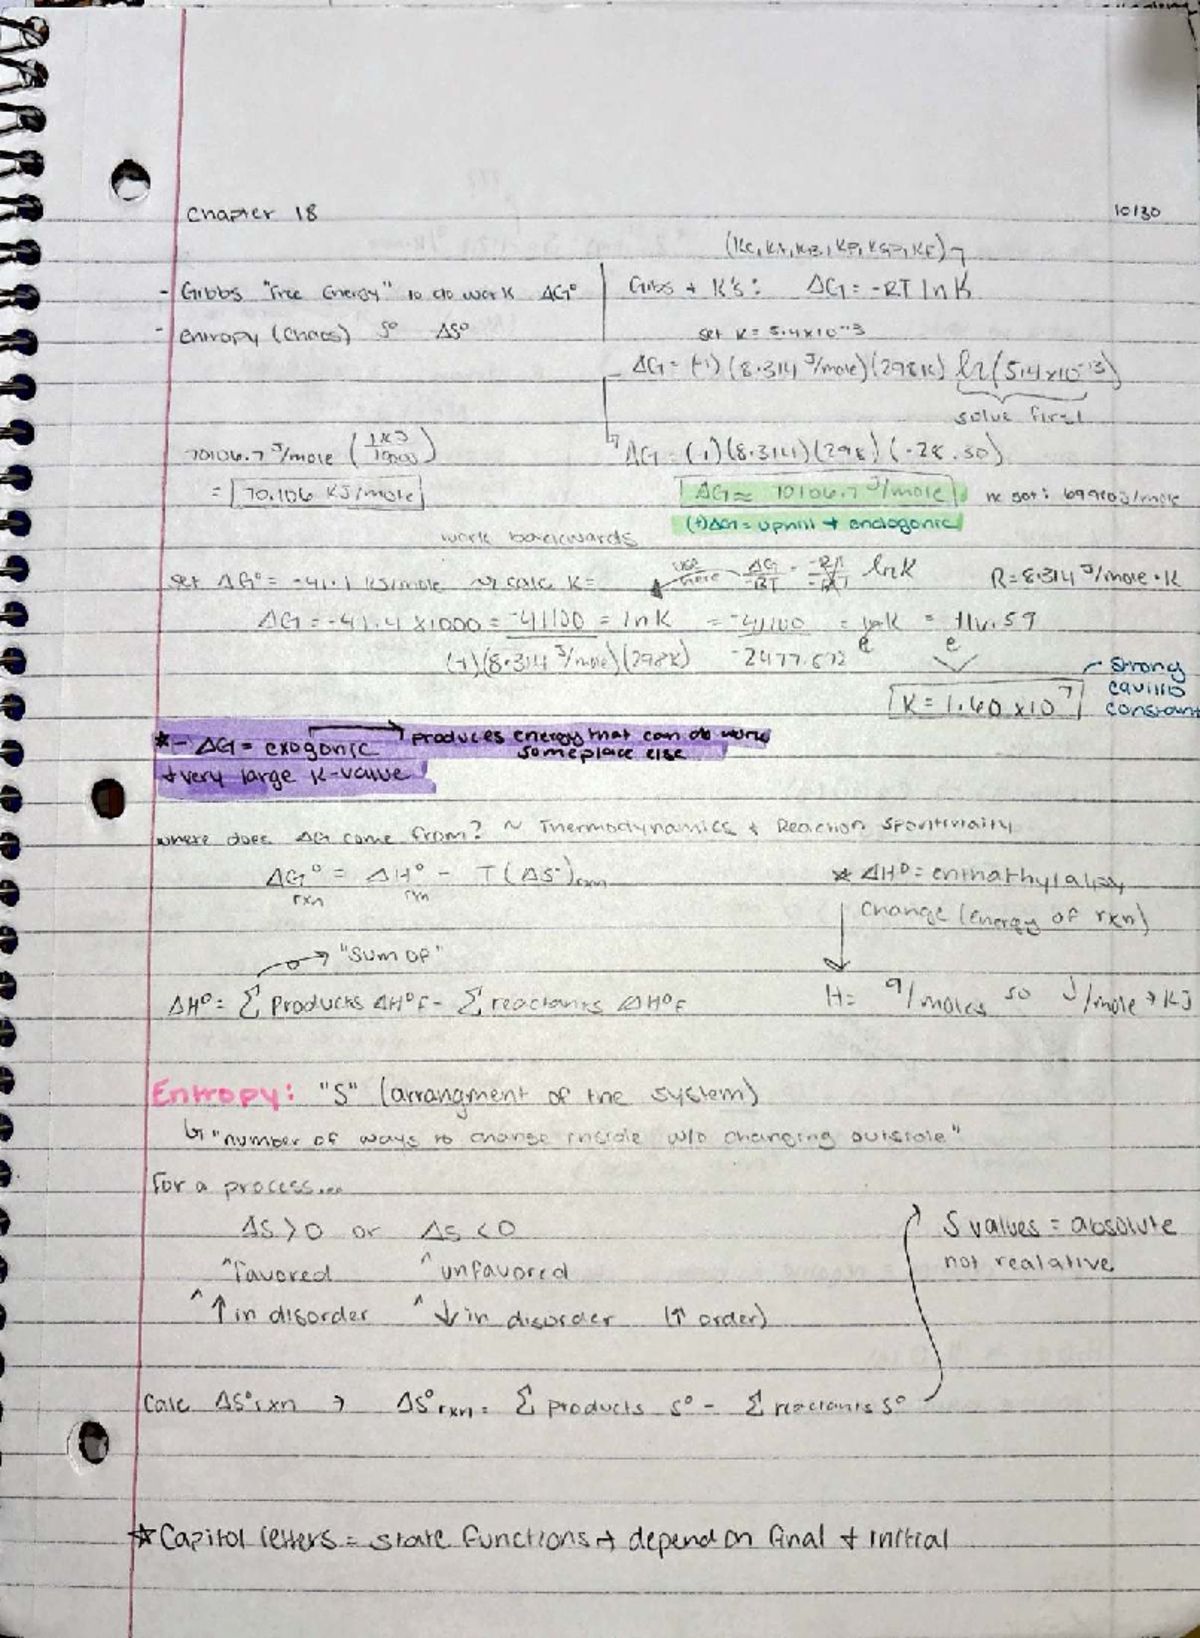 Chapter 18
10/30
(Kc, KA, KB, KP, KSP, KF)
- Gibbs "Free Energy" to do work ΔG°
Gibs + K's: ΔG = -RT ln K
- entropy (Chaos) S° ΔS°
set K = 5.4x10⁻¹³
ΔG = (-1)(8.314 J/mole)(298K) ln(5.4x10⁻¹³)
solve first
70106.7 J/mole (1KJ/1000)
ΔG = (-1)(8.314)(298)(-28.30)
= 70.106 KJ/mole
ΔG ≈ 70106.7 J/mole
he got: 69990J/mole
(+)ΔG = uphill + endogonic
work backwards
set ΔG° = -41.1 KJ/mole ~ calc K =
use here ΔG/-RT = -RT/-RT ln K
R = 8.314 J/mole · K
ΔG = -41.4 x1000 = -41100 = ln K = -41100 = e ln K = e 16.59
(-1)(8.314 J/mole)(298K) -2477.572
K = 1.60 x10⁷
strong
equilib
constant
* - ΔG = exogonic → produces energy that can do work
someplace else
+ very large K-value
where does ΔG come from? ~ Thermodynamics + Reaction
ΔG°rxn = ΔH°rxn - T(ΔS°)rxn
* ΔH° =
change (energy of rxn)
→ "Sum of"
ΔH° = Σ Products ΔH°F - Σ reactants ΔH°F
H = q/moles so J/mole → KJ
Entropy: "S" (arrangment of the system)
↳ "number of ways to change inside w/o changing outside"
For a process...
ΔS > 0 or ΔS < 0
^favored ^unfavored
^ ↑ in disorder ^ ↓ in disorder (↑ order)
S values = absolute
not realative
Calc ΔS°rxn → ΔS°rxn = Σ products S° - Σ reactants S°
* Capitol letters = state functions → depend on final + initial